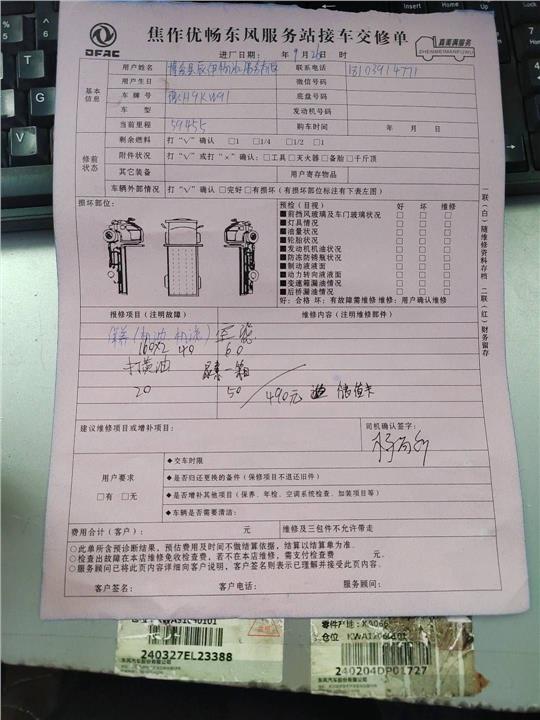 DFAC
焦作优畅东风服务站接车交修单
真美满服务
ZHENMEIMANFUWU
进厂日期： 年 9月 26日 时
基本信息
用户姓名
联系电话 13103914771
用户生日 微信号码
车牌号 豫H9KW91 底盘号码
车型 发动机号码
当前里程 59455 购车时间 年 月 日
修前状态
剩余燃料 打“√”确认 □1 □1/4 □1/2 □1
附件状况 打“√”或打“×”确认：□工具□灭火器□备胎□千斤顶
其它装备 用户寄存物品
车辆外部情况 打“√”确认 □完好□有损坏（有损坏部位标注有下表左图）
损坏部位：
预检（目视） 好 坏 维修
■前挡风玻璃及车门玻璃状况 □ □ □
■灯具情况 □ □ □
■油量状况 □ □ □
■轮胎状况 □ □ □
■发动机机油状况 □ □ □
■防冻防锈瓶状况 □ □ □
■制动液液面 □ □ □
■动力转向液液面 □ □ □
■变速箱漏油情况 □ □ □
■后桥漏油情况 □ □ □
好：合格 坏：有故障需维修 维修：用户确认维修
一联（白）随维修资料存档 二联（红）财务留存
报修项目（注明故障） 维修内容（注明维修部件）
保养（机油 机滤 空滤
160X2 40 60
打黄油 尿素一箱
20 50 490元 储值卡
建议维修项目或增补项目： 司机确认签字：
用户要求
□有 □无
◆交车时限
◆是否归还更换的备件（保修项目不退还旧件）
◆是否增补其他项目（保养、年检、空调系统检查、加装项目等）
◆车辆是否需要清洁：
费用合计（客户）： 元 维修及三包件不允许带走
○此单所含预诊断结果，预估费用及时间不做结算依据，结算以结算单为准。
○检查出故障在本店维修免收检查费，若不在本店维修，需支付检查费 元。
○服务顾问已将此页内容详细向客户说明，客户签名则表示已理解并接受此页内容。
客户签名： 客户电话： 服务顾问：
240327EL23388
东风汽车股份有限公司
零件产地：K9066
仓位
240204DP01727
东风汽车股份有限公司